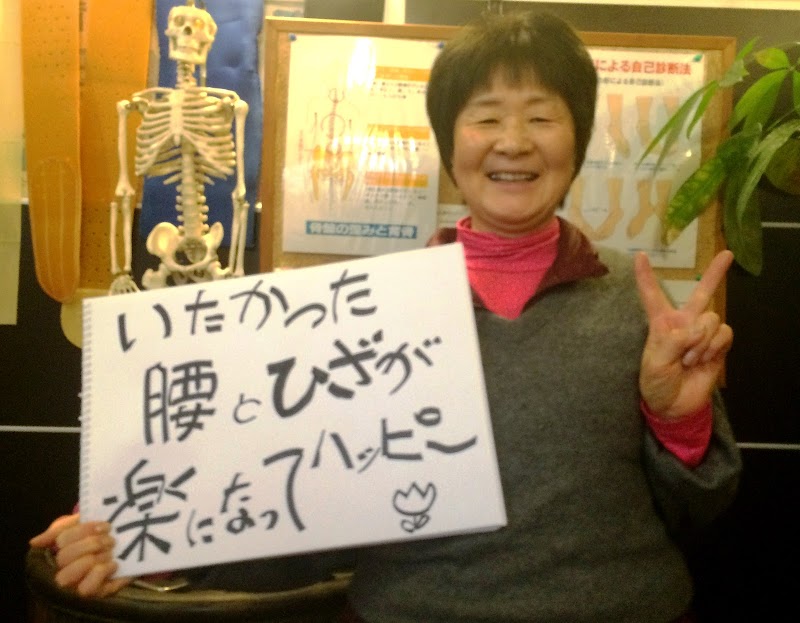 いたかった
腰とひざが
楽になってハッピー
骨盤の歪みと背骨
による自己診断法